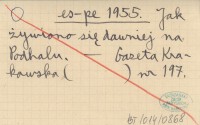 O es-pe 1955. Jak
żywiono się dawniej na
Podhalu. — Gazeta Kra-
kowska ( ) nr 197.
BJ/014/0868